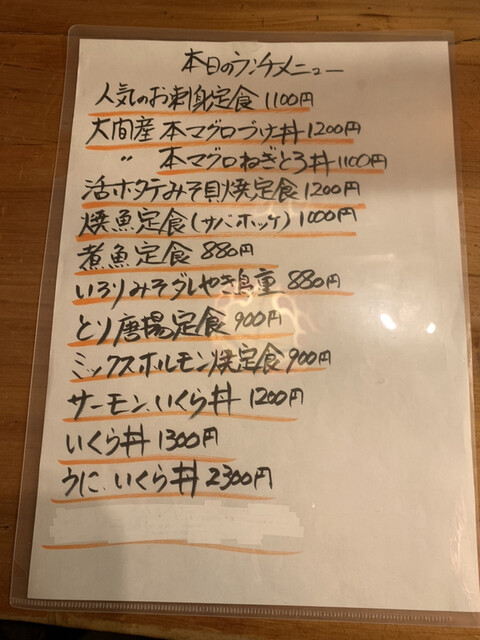 本日のランチメニュー
人気のお刺身定食 1100円
大間産 本マグロづけ丼 1200円
〃 本マグロねぎとろ丼 1100円
活ホタテみそ貝焼定食 1200円
焼魚定食(サバ・ホッケ) 1000円
煮魚定食 880円
いろりみそダレやき鳥重 880円
とり唐揚定食 900円
ミックスホルモン焼定食 900円
サーモン、いくら丼 1200円
いくら丼 1300円
うに、いくら丼 2300円